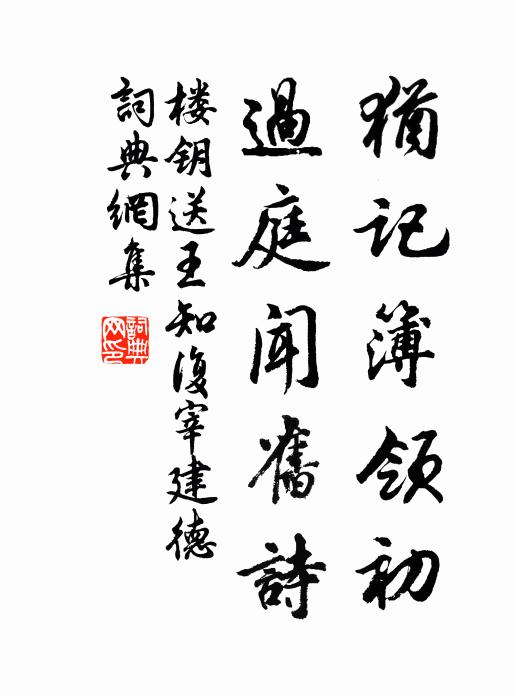 猶記簿領初
過庭聞舊詩
楼钥送王知復宰建德
詞典網集
詞典网印